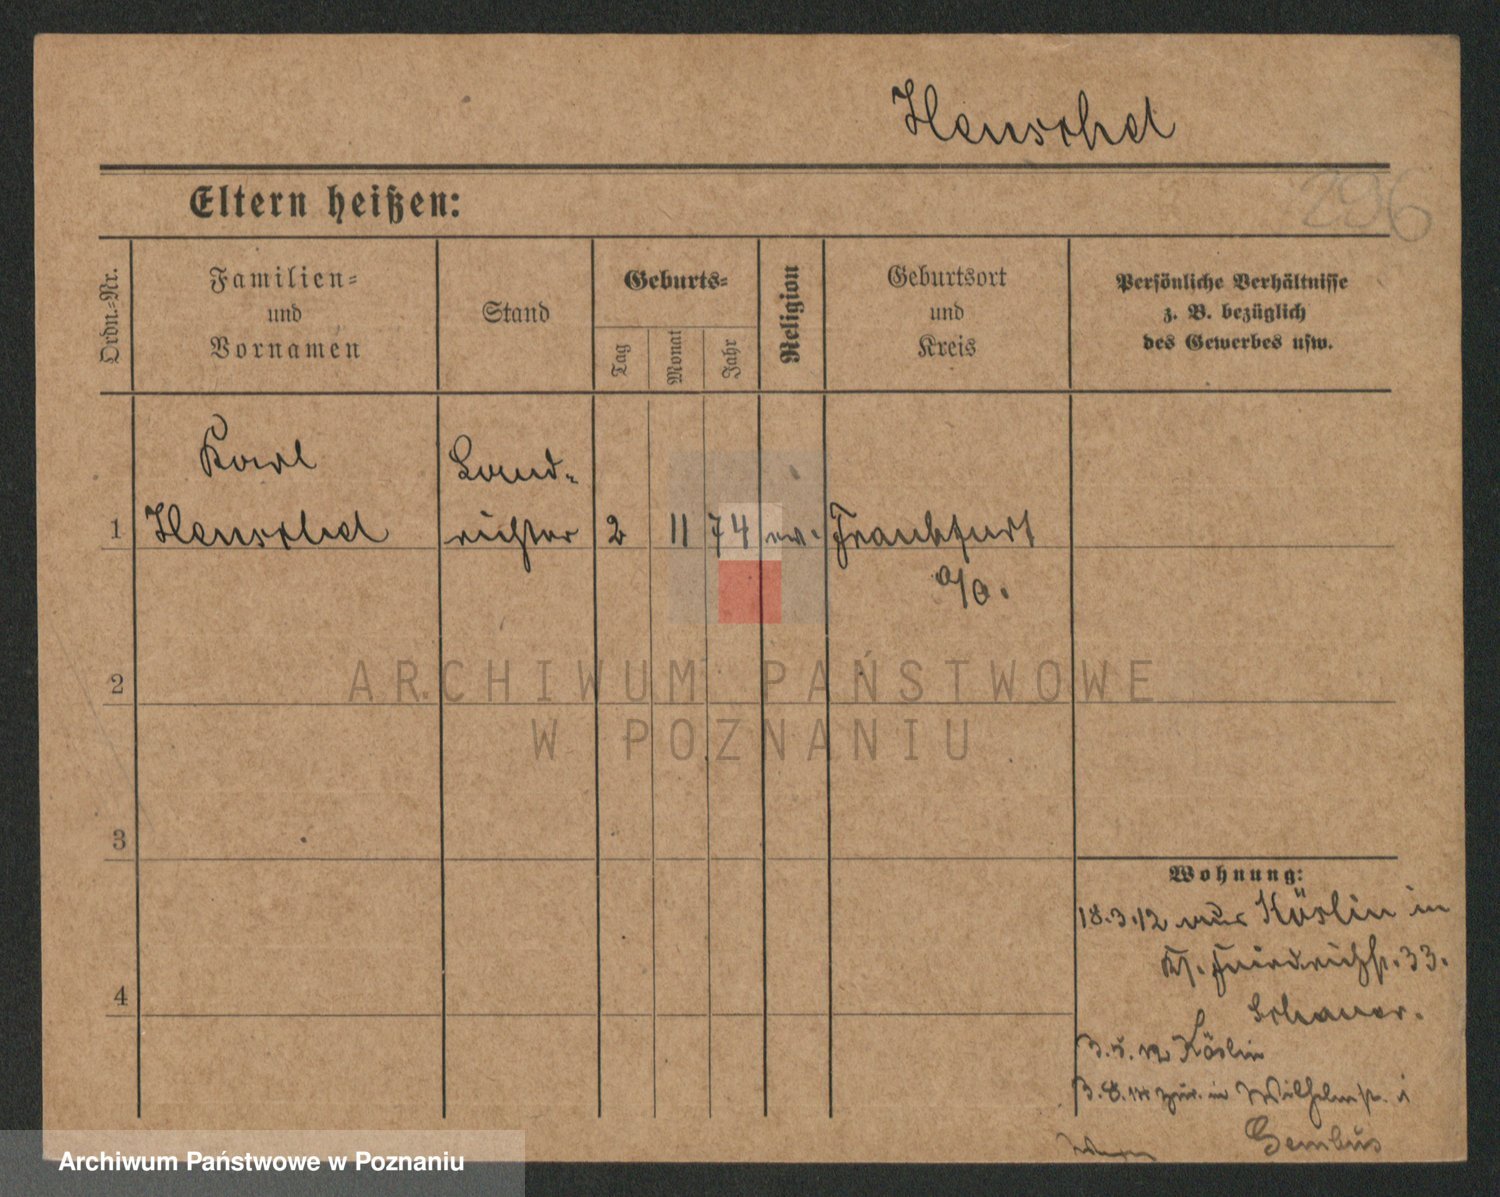 Henschel
Eltern heißen:
296
Ordn.-Nr.
Familien-
und
Vornamen
Stand
Geburts-
Tag
Monat
Jahr
Religion
Geburtsort
und
Kreis
Persönliche Verhältnisse
z. B. bezüglich
des Gewerbes usw.
1
Karl
Henschel
Land-
richter
2
11
74
ev.
Frankfurt
a/O.
2
3
4
Wohnung:
18.3.12 aus Köslin in
Friedrichst. 33.
3.5.12 Köslin
3.8. zur. in Wilhelmst.
ARCHIWUM PAŃSTWOWE
W POZNANIU
Archiwum Państwowe w Poznaniu